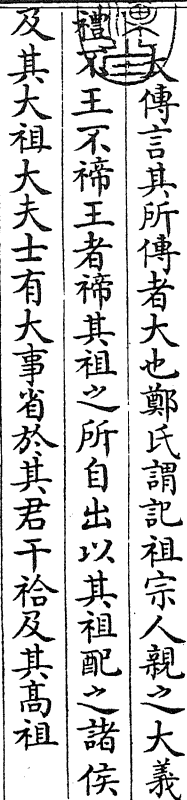 大傳言其所傳者大也鄭氏謂記祖宗人親之大義
禮不王不禘王者禘其祖之所自出以其祖配之諸侯
及其大祖大夫士有大事省於其君干祫及其高祖